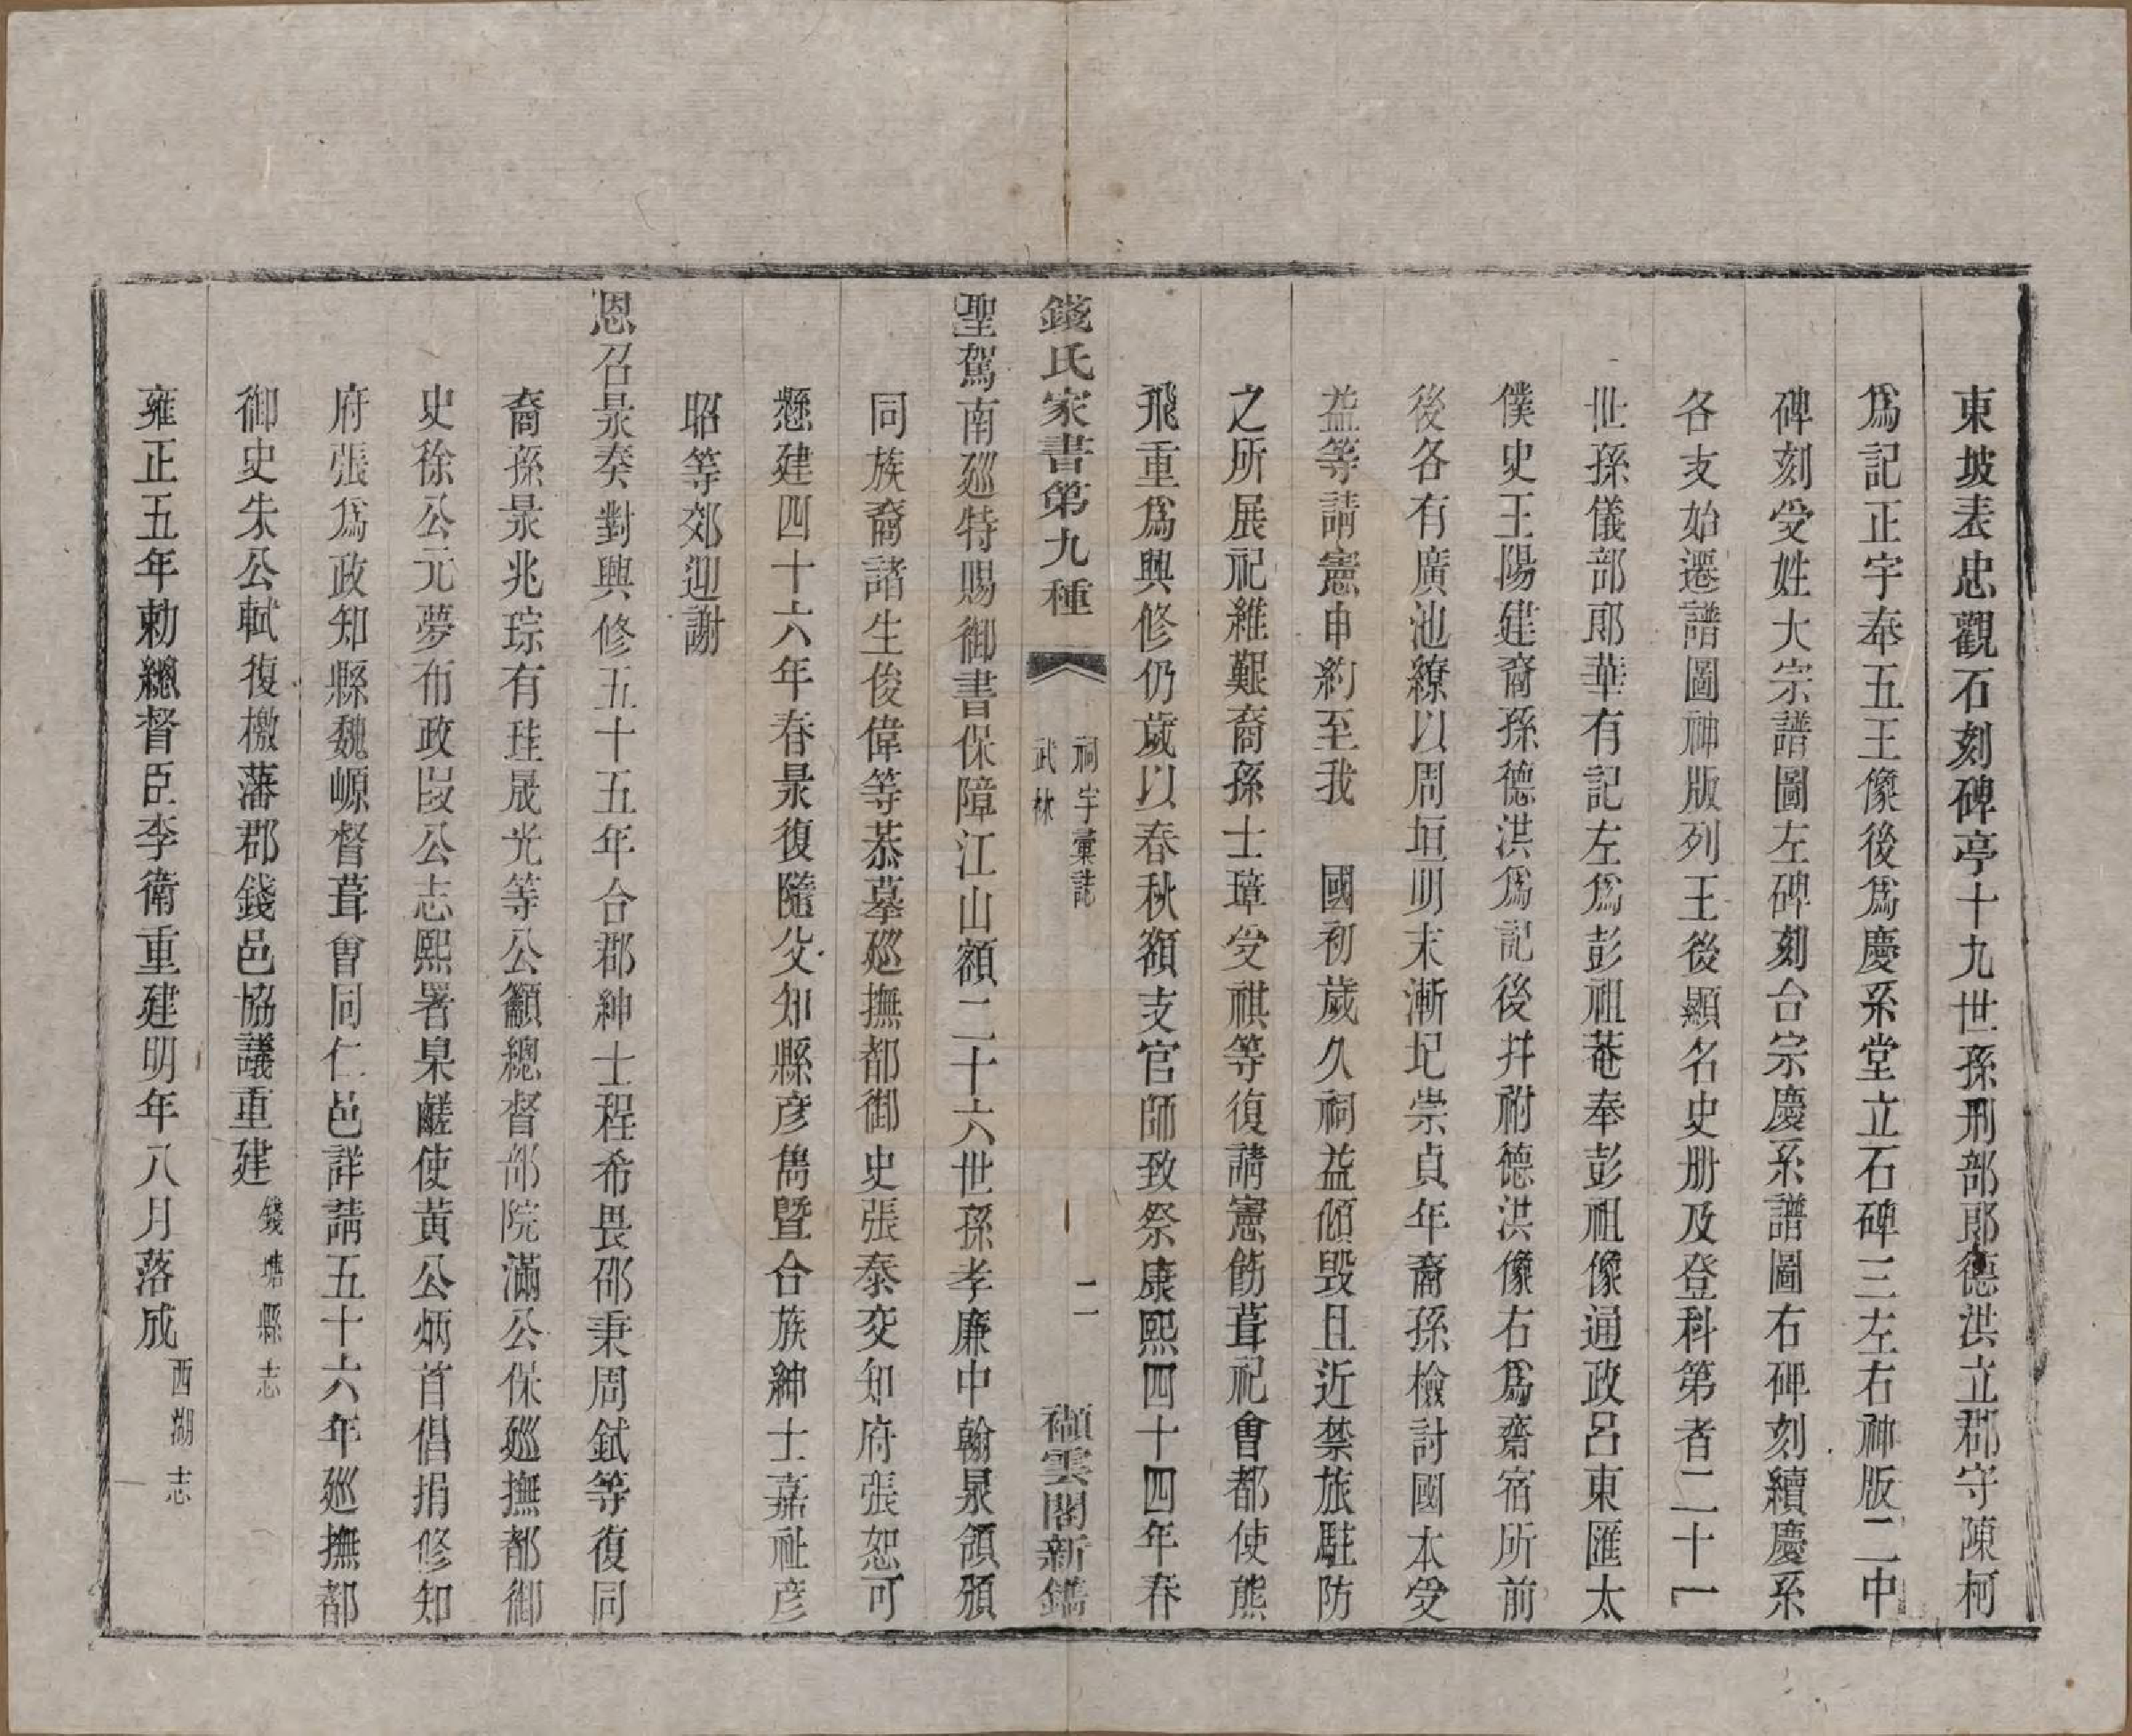 東坡表忠觀石刻碑亭十九世孫刑部郎德洪立郡守陳柯
爲記正宇奉五王像後爲慶系堂立石碑三左右神版二中
碑刻受姓大宗譜圖左碑刻台宗慶系譜圖右碑刻續慶系
各支始遷譜圖神版列王後顯名史册及登科第者二十一
世孫儀部郎華有記左爲彭祖菴奉彭祖像通政呂東匯太
僕史王陽建裔孫德洪爲記後并祔德洪像右爲齋宿所前
後各有廣池繚以周垣明末漸圮崇貞年裔孫檢討國本受
益等請憲申約至我　國初歲久祠益傾毀且近禁旅駐防
之所展祀維艱裔孫士璋受祺等復請憲飭葺祀會都使熊
飛重爲興修仍歲以春秋額支官師致祭康熙四十四年春
錢氏家書第九種
祠宇彙誌
武林
二
襭雲閣新鐫
聖駕南巡特賜御書保障江山額二十六世孫孝廉中翰杲領頒
同族裔諸生俊偉等恭摹巡撫都御史張泰交知府張恕可
懸建四十六年春杲復隨父知縣彥雋曁合族紳士嘉祉彥
昭等郊迎謝
恩召杲奏對興修五十五年合郡紳士程希畏邵秉周鉽等復同
裔孫杲兆琮有珪晟光等公籲總督部院滿公保巡撫都御
史徐公元夢布政叚公志熙署臬鹺使黃公炳首倡捐修知
府張爲政知縣魏嵊督葺會同仁邑詳請五十六年巡撫都
御史朱公軾復檄藩郡錢邑協議重建錢塘縣志
雍正五年勅總督臣李衛重建明年八月落成西湖志